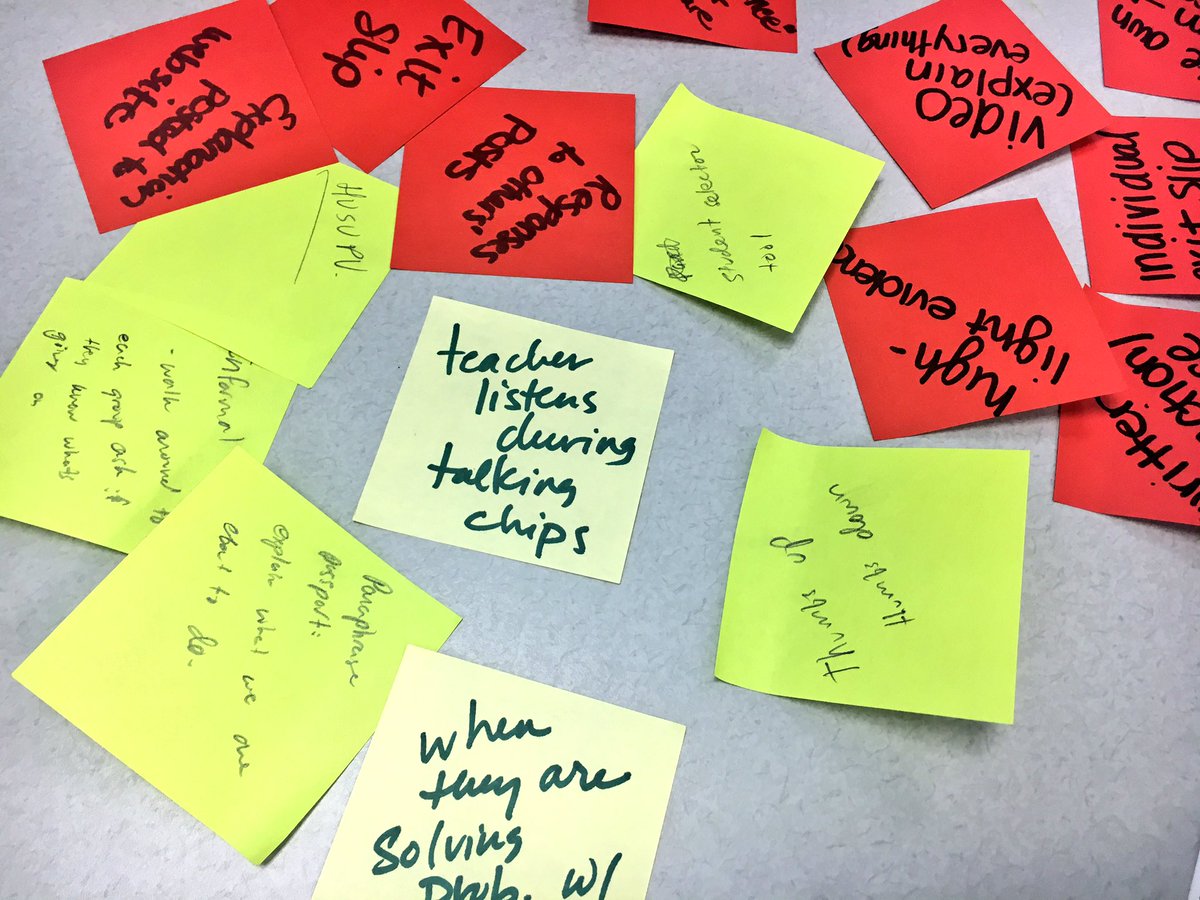 Explanation
posted to
website
Exit
Slip
Responses
to others'
posts
student selector
tool
video
(explain
everything)
own
individual
slip
high-
light
informal
- walk around to
each group ask if
they know whats
going on
teacher
listens
during
talking
chips
thumbs up
thumbs down
Paraphrase
Passport:
explain what we are
about to do.
when
they are
solving
prob. w/